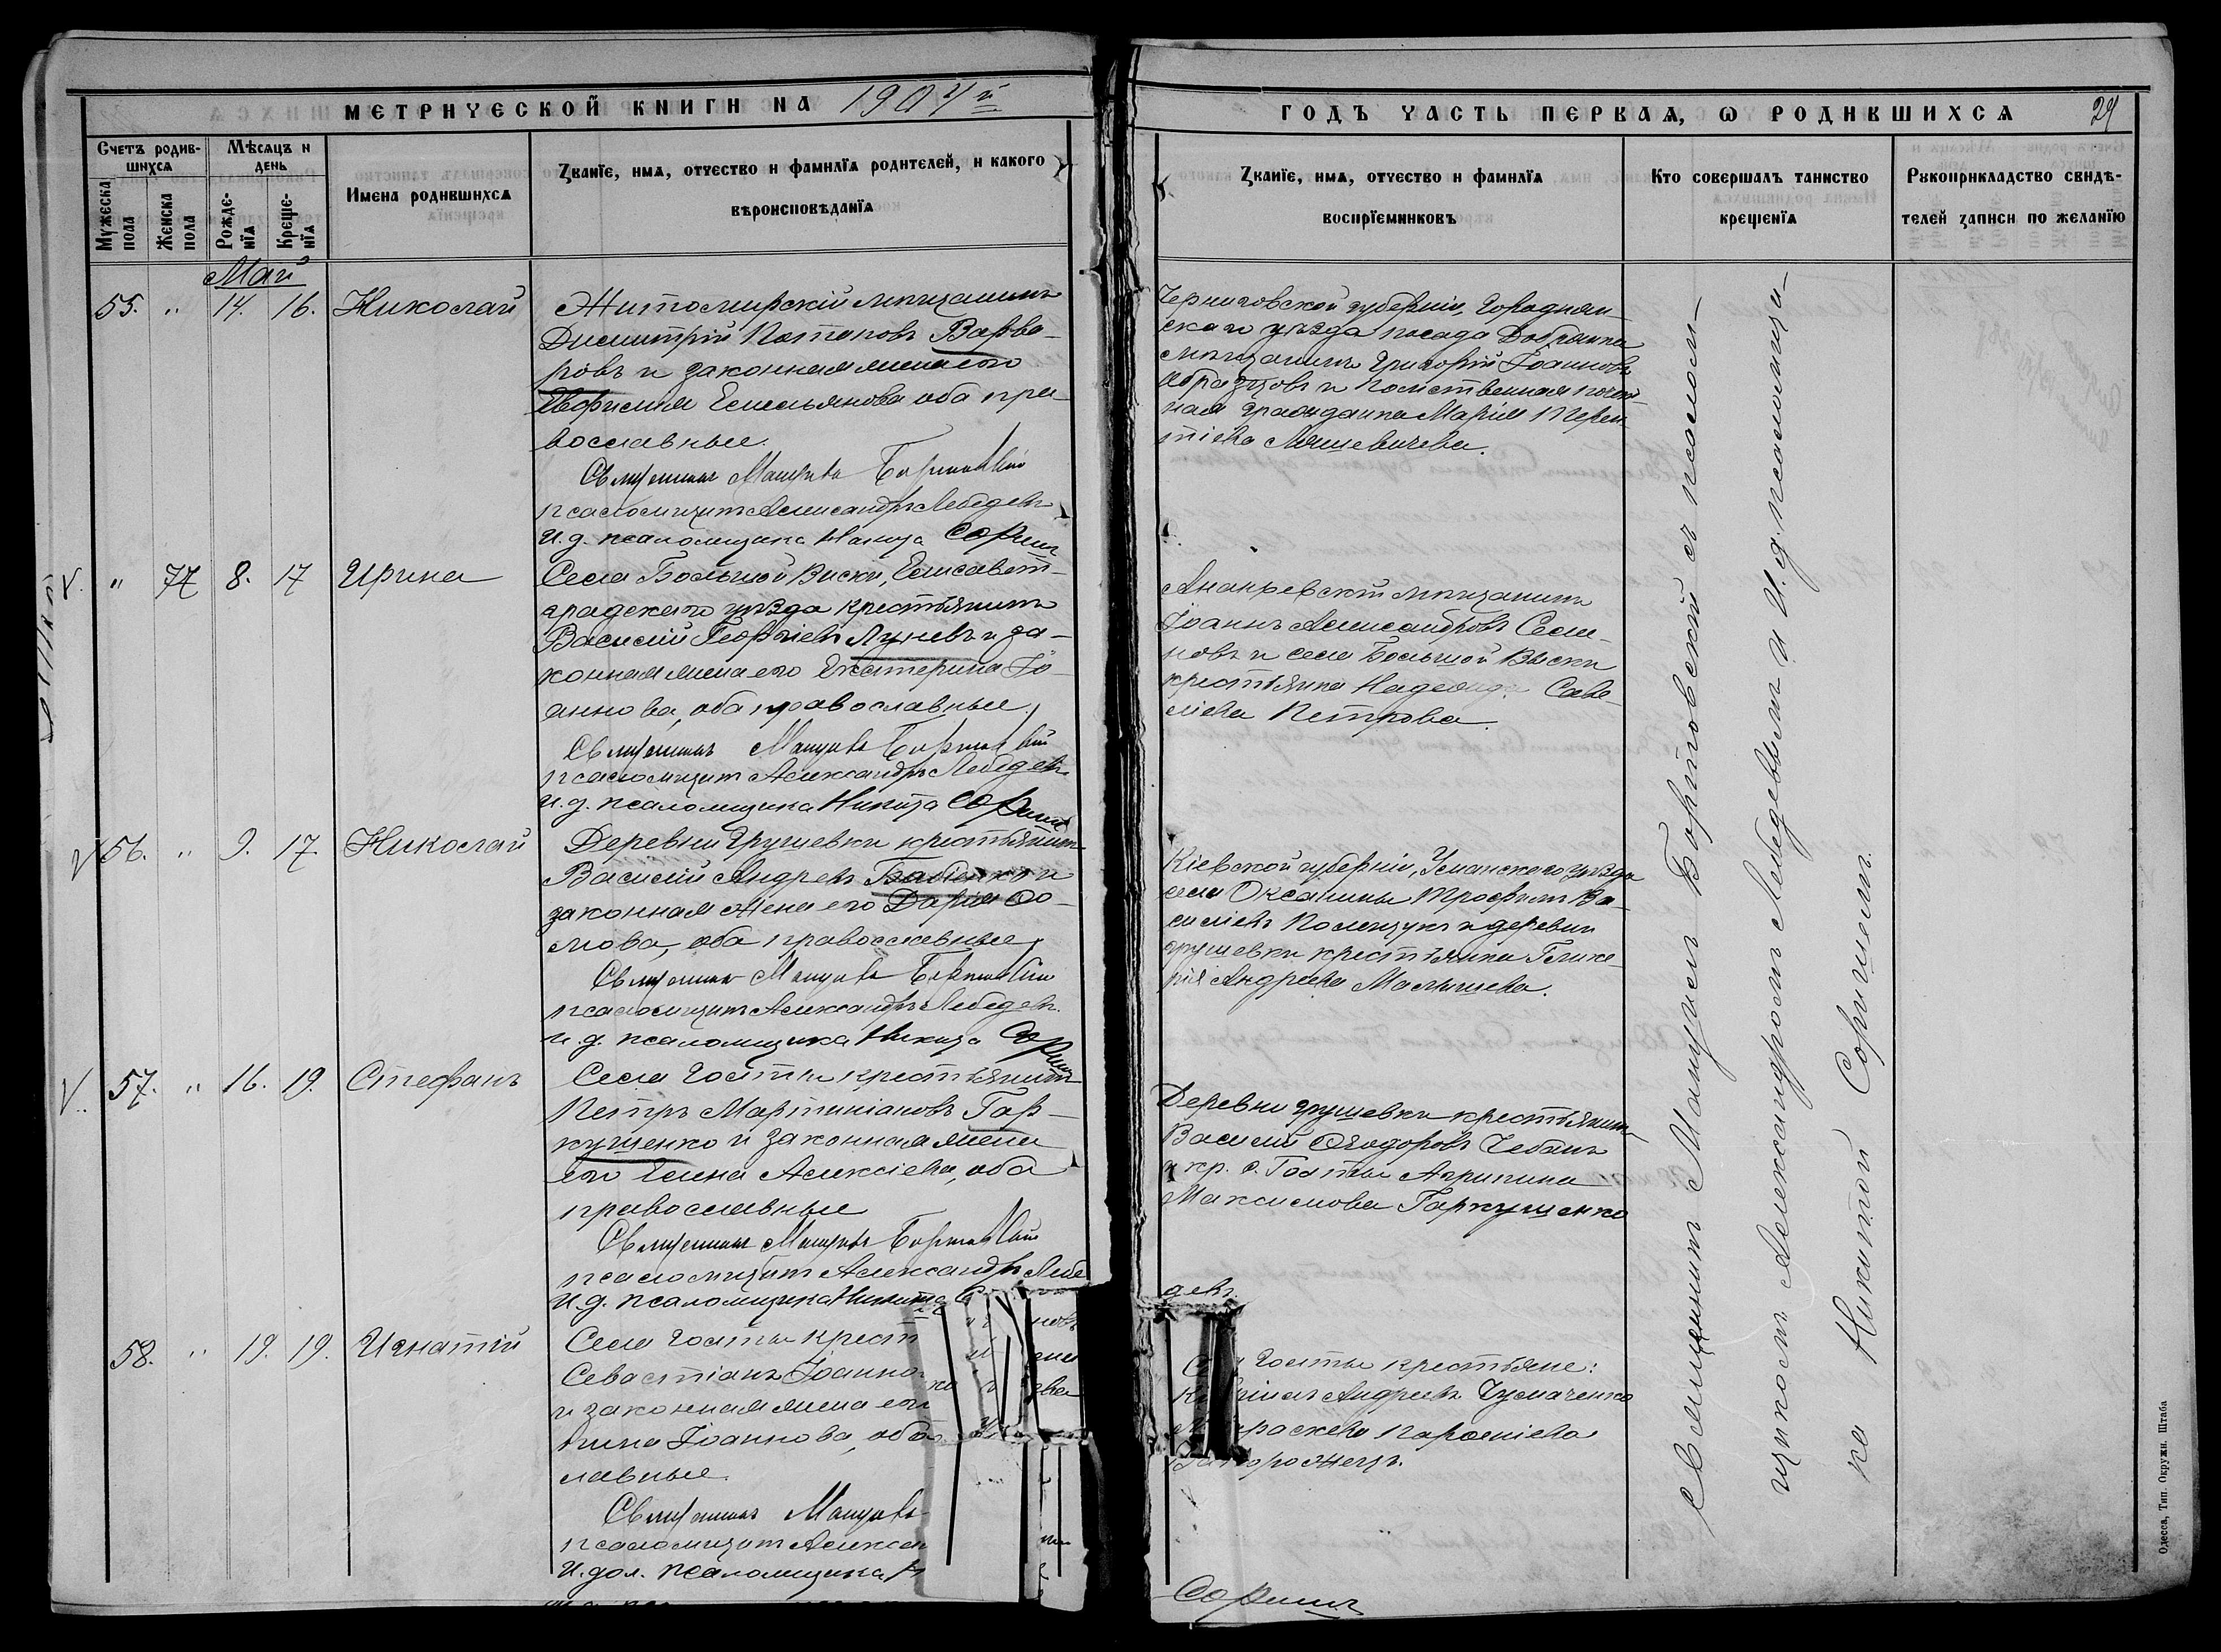 МЕТРИЧЕСКОЙ КНИГИ НА 1904й
ГОДЪ ЧАСТЬ ПЕРВАЯ, Ѡ РОДИВШИХСЯ
24
Счетъ родив-
шихся
Мѣсяцъ и
день
Мужеска
пола
Женска
пола
Рожде-
нїя
Креще-
нїя
Имена родившихся
Званїе, имя, отчество и фамилїя родителей, и какого
вѣроисповѣданїя
Званїе, имя, отчество и фамилїя
воспрїемниковъ
Кто совершалъ таинство
крещенїя
Рукоприкладство свидѣ-
телей записи по желанїю
Май
55. " 14. 16. Николай
Житомирскій мѣщанинъ
Димитрій Потаповъ Варва-
ровъ и законная жена его
Евфимія Емельянова оба пра-
вославные.
Священникъ Мануилъ Бортовскій
псаломщикъ Александръ Лебедевъ
И. д. псаломщика Никита Соринъ
Черниговской губерніи, Городнян-
скаго уѣзда посада Добрянка
мѣщанинъ Григорій Іоанновъ
Абразцовъ и
ная гражданка Марія Терен-
тіева
" 77 8. 17 Ирина
Села Большой Виски, Елисавет-
градскаго уѣзда крестьянинъ
Василій Георгіевъ Лунёвъ и за-
конная жена его Екатерина Іо-
аннова, оба православные.
Священникъ Мануилъ Бортовскій
псаломщикъ Александръ Лебедевъ
И. д. псаломщика Никита Соринъ
Ананьевскій мѣщанинъ
Іоаннъ Александровъ Семе-
новъ и села Большой Выски
крестьянка Надежда Саве-
ліева Петрова.
56. " 9. 17. Николай
Деревни Грушевки крестьянинъ
Василій Андреевъ Бабіенко и
законная жена его Дарія Ѳо-
мова, оба православные.
Священникъ Мануилъ Бортовскій
псаломщикъ Александръ Лебедевъ.
И. д. псаломщика Никита Соринъ
Кіевской губерніи, Уманскаго уѣзда
села Оксанины Трофимъ Ва-
силіевъ Полищукъ и деревни
Грушевки крестьянка Глике-
рія Андреева Малышева.
57. " 16. 19. Стефанъ
Села Голты крестьянинъ
Петръ Мартиніановъ Гар-
кушенко и законная жена
его Елена Алексіева, оба
православные
Священникъ Мануилъ Бортовскій
псаломщикъ Александръ Лебе
девъ.
И. д. псаломщика Никита
Деревни Грушевки крестьянинъ
Василій Ѳеодоровъ Чебанъ
и кр. с. Голты Агрипина
Максимова Гаркушенко
58. " 19. 19. Игнатій
Села Голты крест
Севастіанъ Іоанно
и законная жена его
Іоаннова, оба
лавные.
Священникъ Мануилъ
псаломщикъ Алексан
И. дол. псаломщика Н
Соринъ
Голты крестьяне:
Андреевъ Чумаченко
раскева Парѳеніева
Священникъ Мануилъ Бортовскій съ псалом-
щикомъ Александромъ Лебедевымъ и И. д. псаломщи-
ка Никитой Соринымъ.
Одесса, Тип. Окружн. Штаба